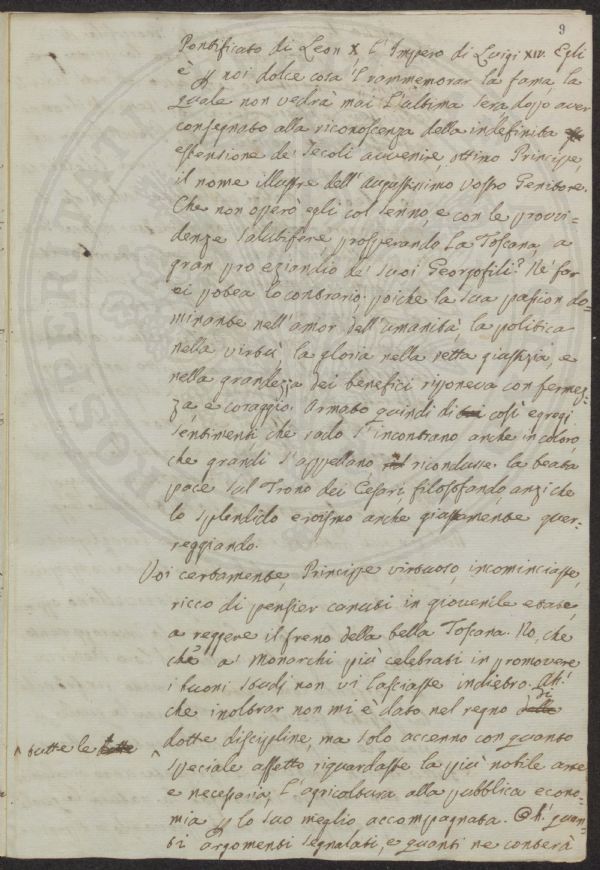 9
Pontificato di Leon X l'Impero di Luigi XIV. Egli
è p noi dolce cosa il rammemorar la fama, la
quale non vedrà mai l'ultima sera dopo aver
consegnato alla riconoscenza della indefinita
estensione de' secoli avvenire, ottimo Principe,
il nome illustre dell'Augustissimo vostro Genitore.
Che non operò egli col senno, e con le provvi-
denze salutifere prosperando la Toscana, a
gran pro eziandio de' suoi Georgofili? Né far
ei potea lo contrario; poiche la sua passion do=
minante nell'amor dell'umanità, la politica
nella virtù, la gloria nella retta giustizia, e
nella grandezza dei benefici riponeva con fermez-
za e coraggio. Armato quindi di così egregi
sentimenti che rado s'incontrano anche in coloro,
che grandi s'appellano, ricondusse la beata
pace sul Trono dei Cesari, filosofando anzi che
lo splendido eroismo anche giustamente guer-
reggiando.
Voi certamente, Principe virtuoso, incominciaste,
ricco di pensier canuti in giovenile etate,
a reggere il freno della bella Toscana. No, che
che a' Monarchi più celebrati in promovere
i buoni studj non vi lasciaste indietro. Ah!
che inoltrar non mi è dato nel regno di
^ tutte le ^ dotte discipline, ma solo accenno con quanto
speciale affetto riguardaste la più nobile arte
e necessaria, l'agricoltura alla pubblica econo-
mia p lo suo meglio accompagnata. Oh! quan-
ti argomenti segnalati, e quanti ne conterà
PROSPERITATI